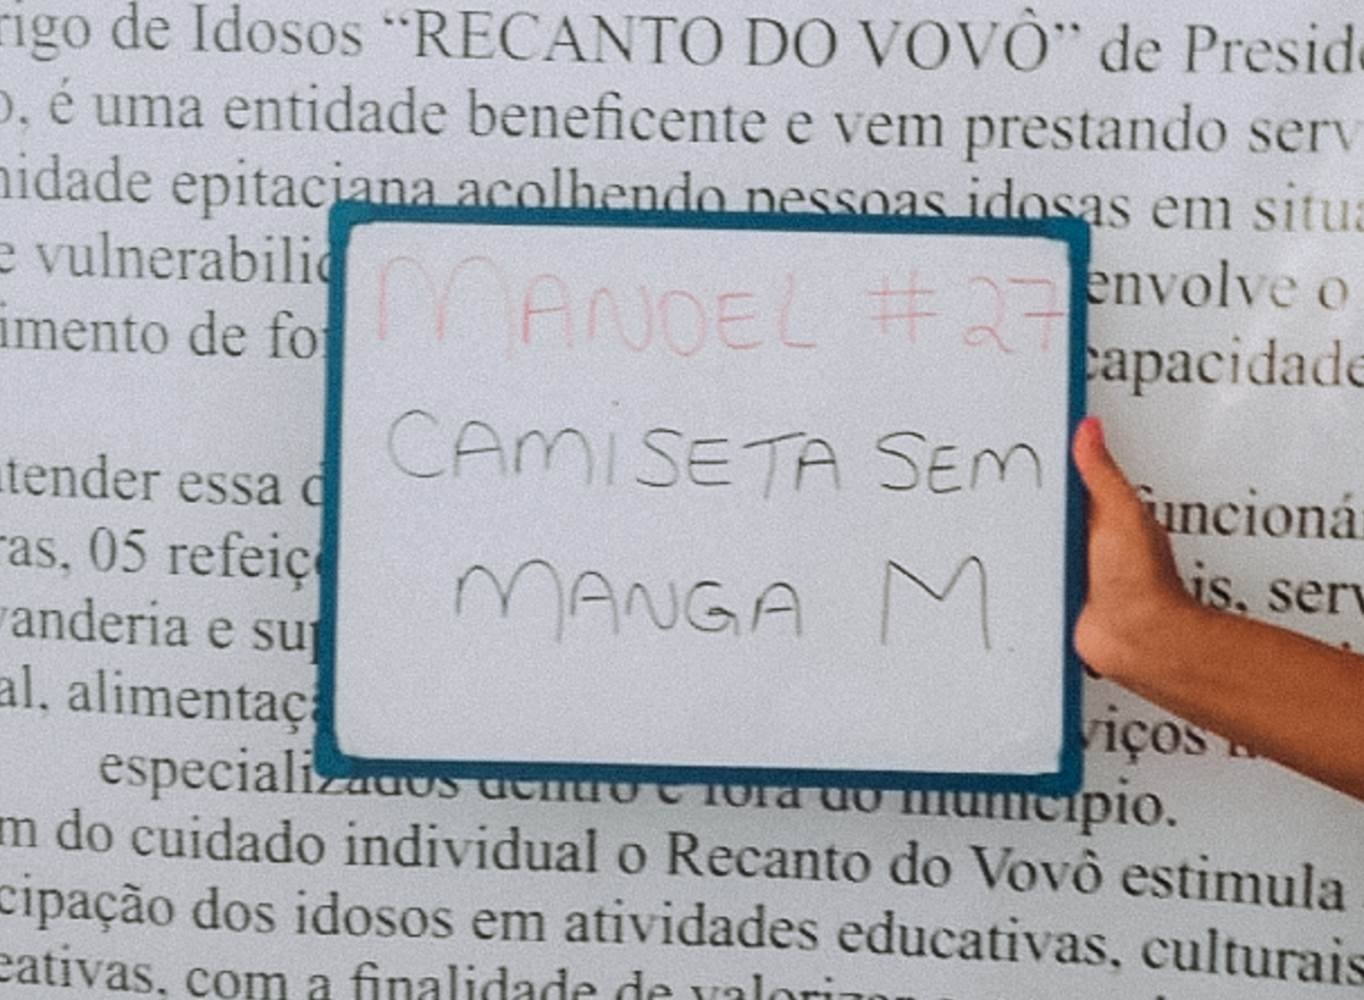 rigo de Idosos “RECANTO DO VOVÔ” de Presid
o, é uma entidade beneficente e vem prestando serv
nidade epitaciana acolhendo pessoas idosas em situa
e vulnerabilid
envolve o
imento de fo
capacidade
MANOEL #27
CAMISETA SEM
MANGA M
tender essa d
funcioná
ras, 05 refeiç
is, serv
vanderia e su
al, alimentaç
viços
especializados dentro e fora do município.
m do cuidado individual o Recanto do Vovô estimula
cipação dos idosos em atividades educativas, culturais
eativas, com a finalidade de valorizar